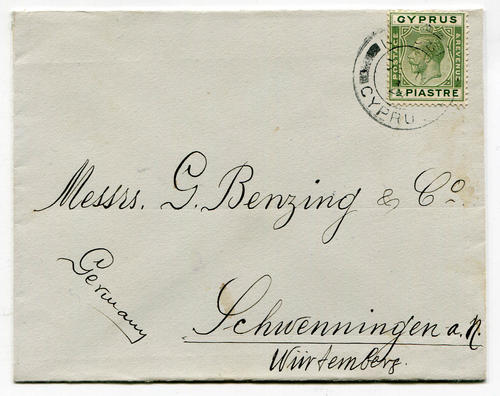 CYPRUS
POSTAGE
& REVENUE
PIASTRE
CYPRU
Messrs. G. Benzing & Co
Germany
Schwenningen a. N.
Würtemberg.